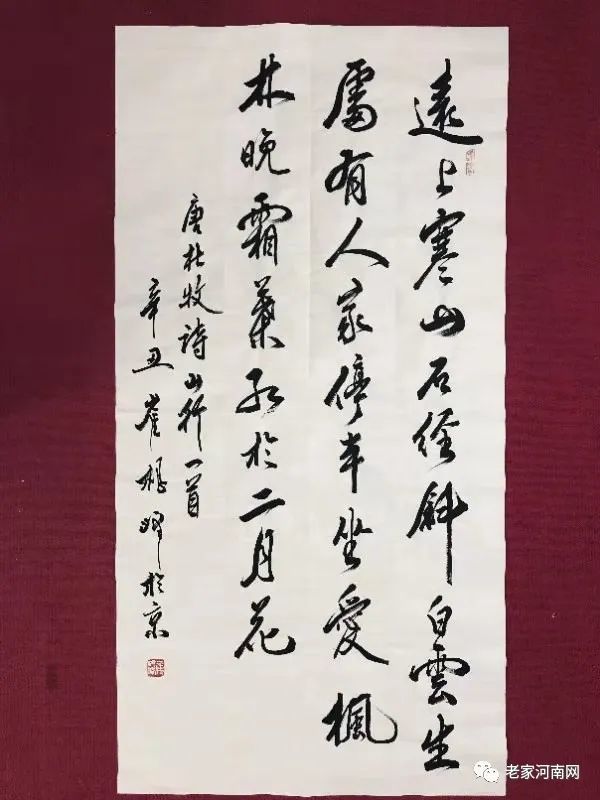 遠上寒山石徑斜白雲生
處有人家停車坐愛楓
林晚霜葉紅於二月花
唐杜牧詩山行一首
辛丑崔峰於京
老家河南网